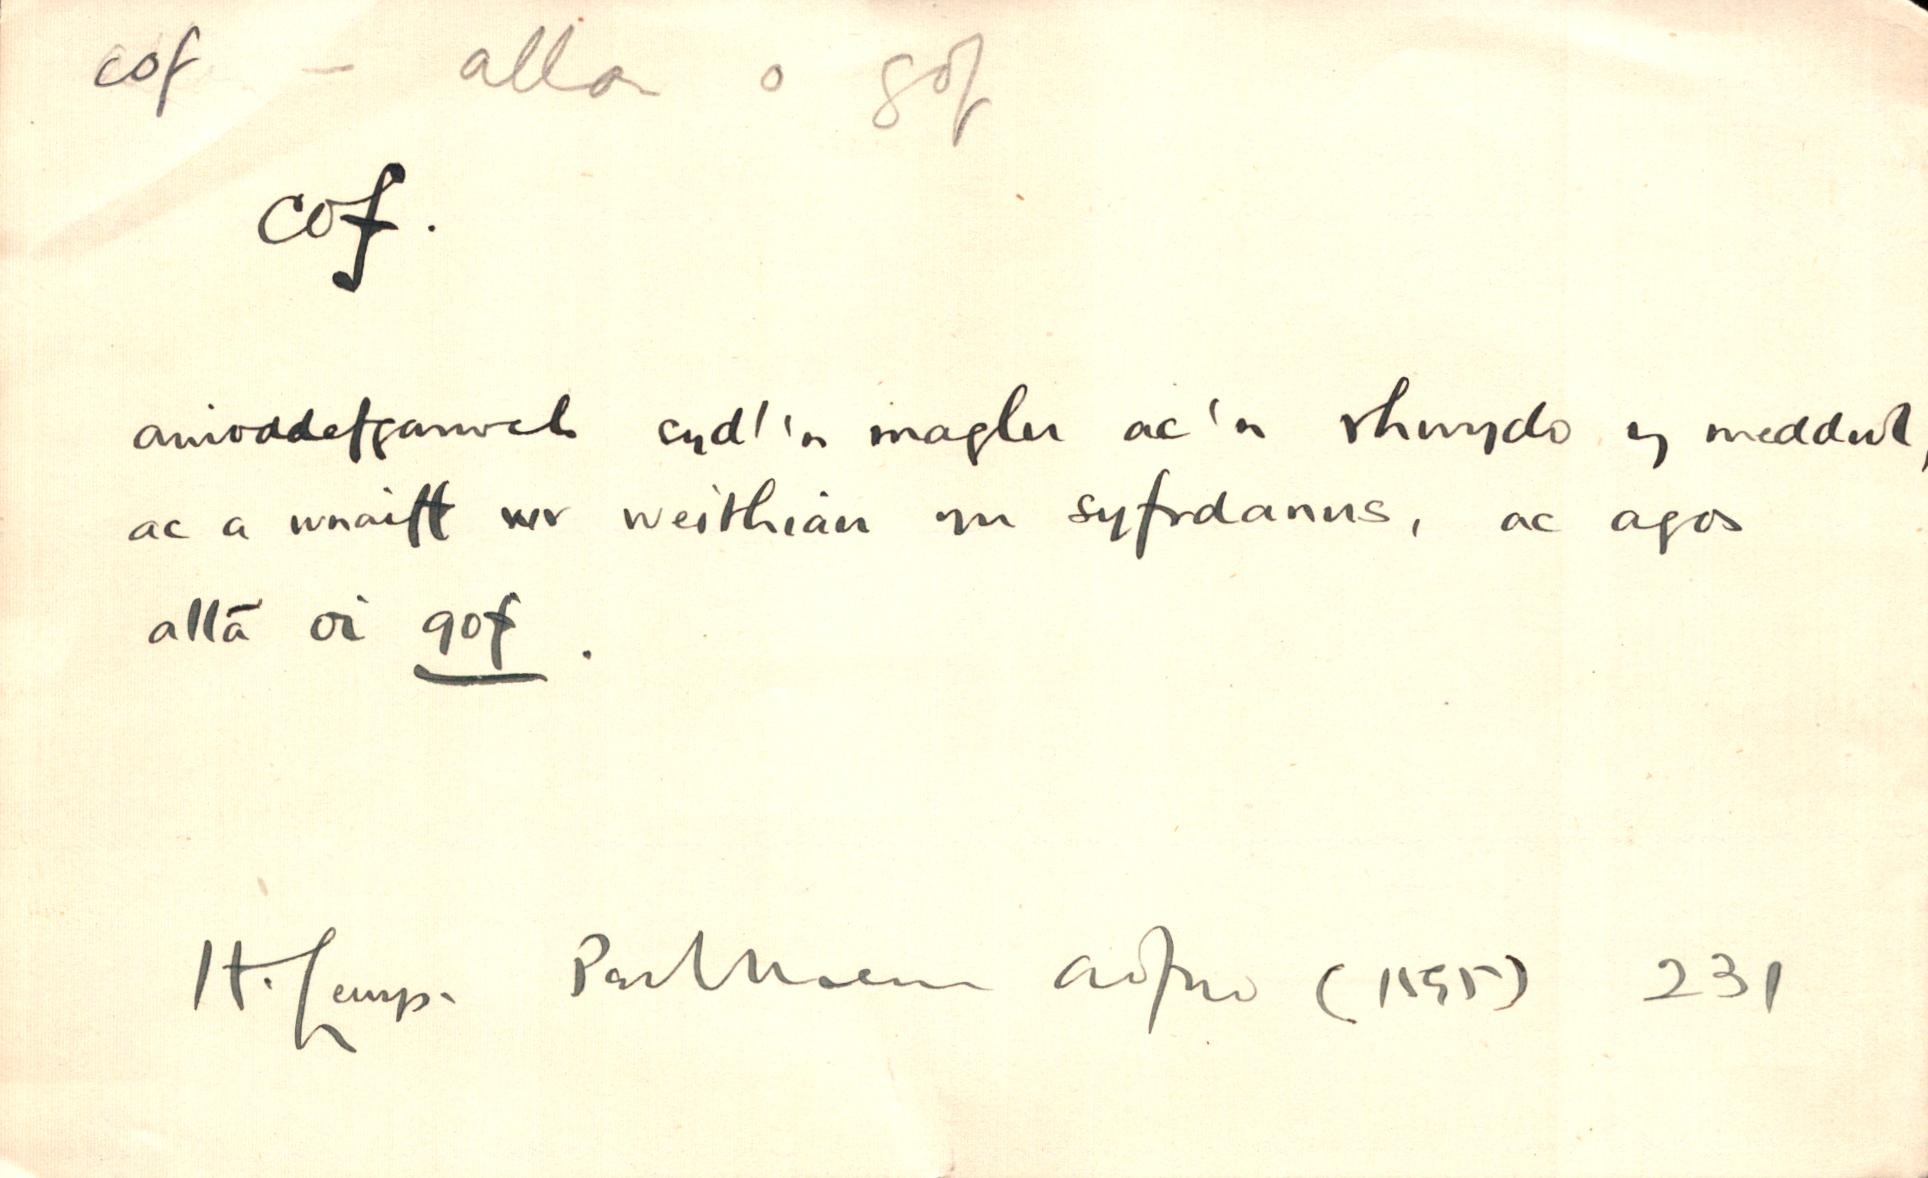 cof – allan o gof
cof.
anioddefgarwch sydd'n maglu ac'n rhwydo y meddwl,
ac a wnaift wr weithiau yn syfrdanus, ac agos
allā oi gof.
H. Lewys. Perl Mewn Adfyd (1595) 231